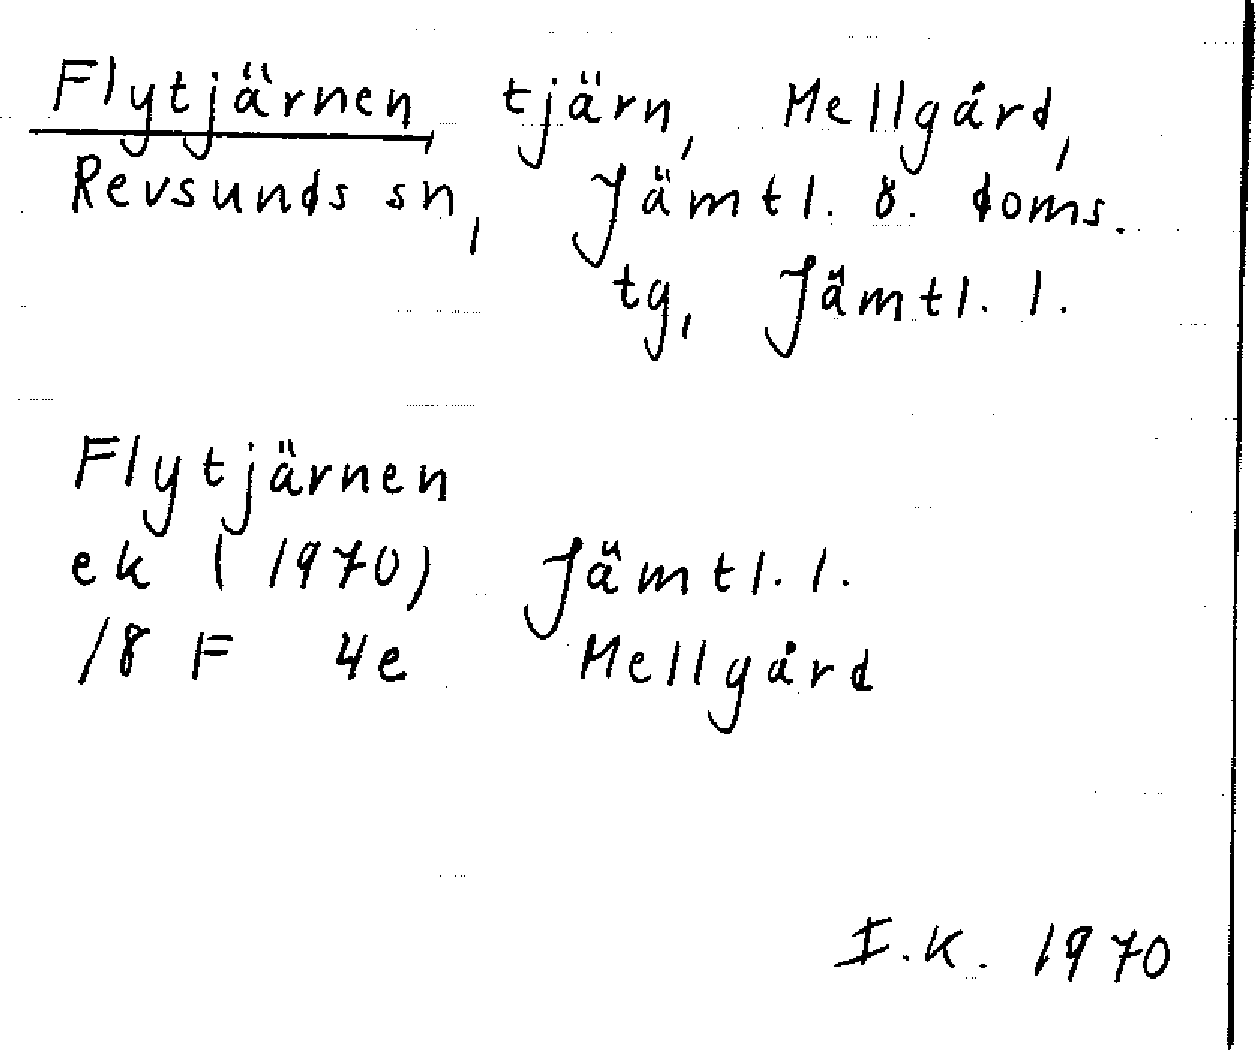 Flytjärnen tjärn, Mellgård,
Revsunds sn, Jämtl. ö. doms.
tg, Jämtl. l.
Flytjärnen
ek (1970) Jämtl. l.
18 F 4e Mellgård
I.K. 1970